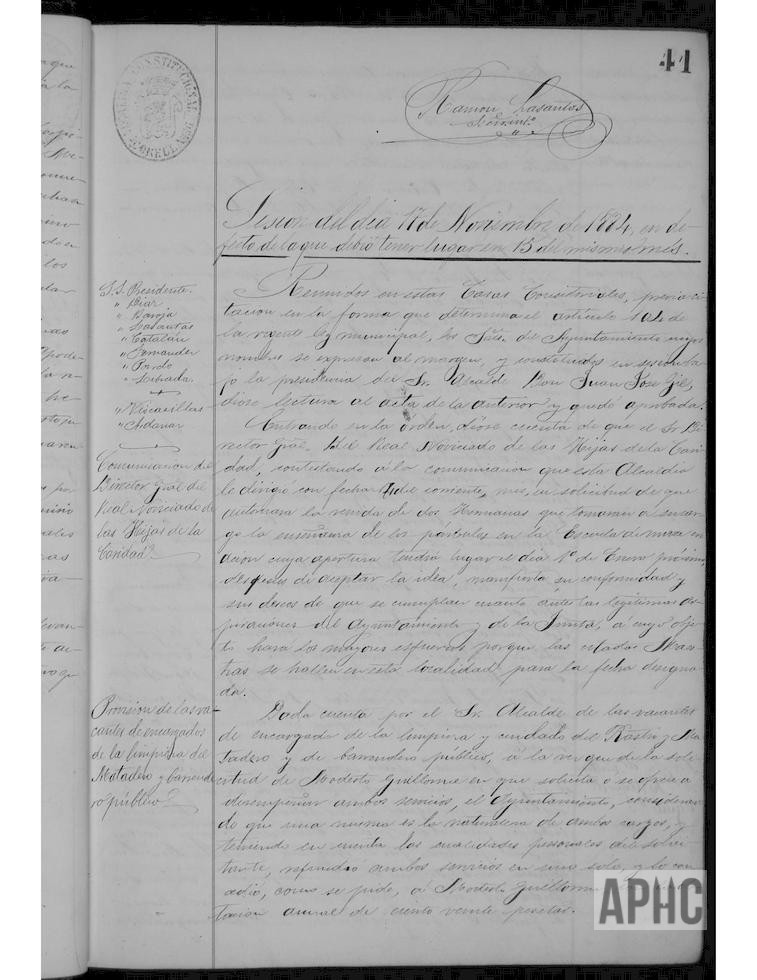 41
Ramon Lasantas
Sesion del dia 17 de Noviembre de 1884, en de-
fecto de la que debió tener lugar en 13 del mismo mes.
S.S. Presidente.
" Liar
" Baroja
" Lasantas
" Catalán
" Fernandez
" Pardo
" Lebrada.
" Vicarillas
" Andanar
Reunidos en estas Casas Consistoriales, previa ci-
tacion en la forma que determina el articulo 104 de
la vigente ley municipal, los Sres. del Ayuntamiento cuyos
nombres se expresan al margen, y constituidos en sesion ba-
jo la presidencia del Sr. Alcalde Don Juan José Gil,
dióse lectura al acta de la anterior y quedó aprobada.
Comunicacion del
Director Gral del
Real Noviciado de
las Hijas de la
Caridad.
Entrando en la órden, dióse cuenta de que el Sr Di-
rector Gral. del Real Noviciado de las Hijas de la Cari-
dad, contestando á la comunicacion que esta Alcaldia
le dirigió con fecha 4 del corriente mes, en solicitud de que
autorizara la venida de dos Hermanas que tomaran á su car-
go la enseñanza de los párvulos en la Escuela de nueva cre-
acion cuya apertura tendrá lugar el dia 1º de Enero próximo,
despues de aceptar la idea, manifiesta su conformidad y
sus deseos de que se cumplan cuanto ántes las legitimas as-
piraciones del Ayuntamiento y de la Junta, á cuyo obje-
to hará los mayores esfuerzos porque las citadas Maes-
tras se hallen en esta localidad para la fecha designa-
da.
Provision de las va-
cantes de encargados
de la limpieza del
Matadero y barrende-
ro público
Dada cuenta por el Sr. Alcalde de las vacantes
de encargado de la limpieza y cuidado del Rastro y Ma-
tadero y de barrendero público, á la vez que de la soli-
citud de Modesto Guillorme en que solicita ó se ofrece a
desempeñar ambos servicios, el Ayuntamiento, consideran-
do que una misma es la naturaleza de ambos cargos, y
teniendo en cuenta las cualidades personales del solici-
tante, refundió ambos servicios en uno solo, y lo con-
cedió, como se pide, á Modesto Guillorme
tacion anual de ciento veinte pesetas.
APHC